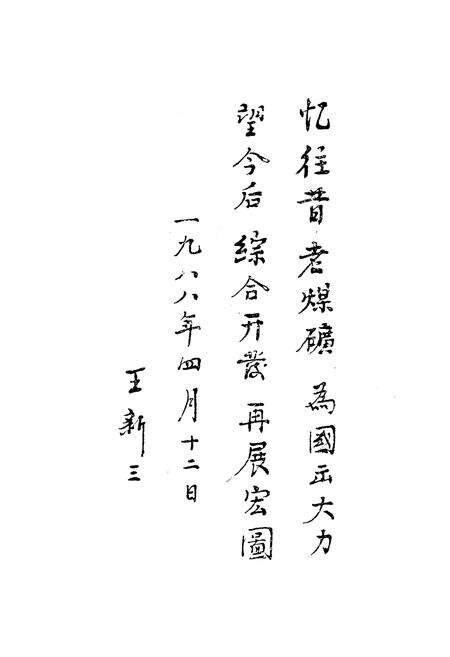 忆往昔老煤礦為國出大力
望今后綜合开發再展宏圖
一九八八年四月十二日
王新三